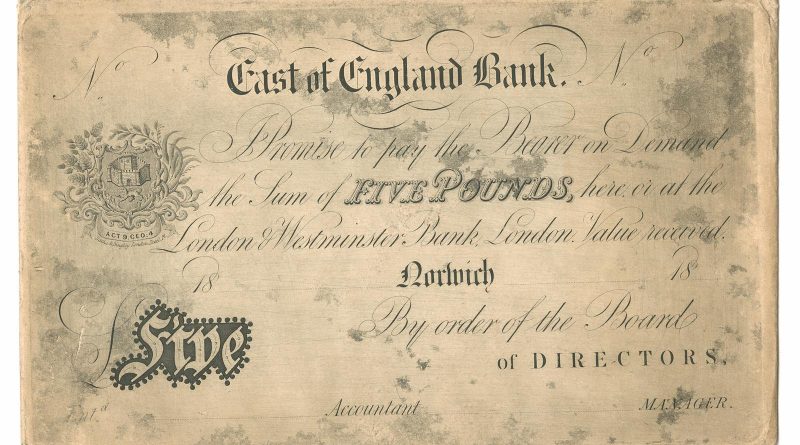 No No
East of England Bank.
I Promise to pay the Bearer on Demand
the Sum of FIVE POUNDS, here, or at the
ACT 9. GEO. 4.
London & Westminster Bank, London. Value received.
18 Norwich 18
£ Five
By order of the Board
of DIRECTORS.
Ent.d Accountant MANAGER.